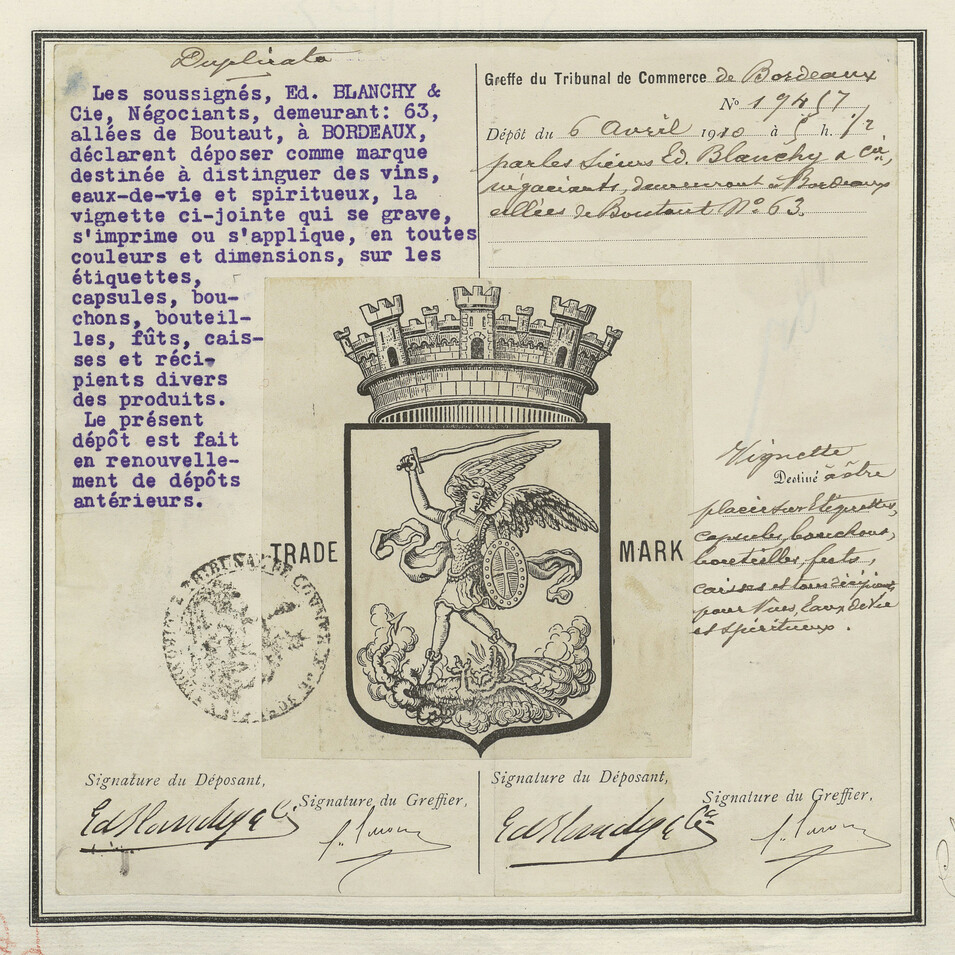 Duplicata
Les soussignés, Ed. BLANCHY &
Cie, Négociants, demeurant: 63,
allées de Boutaut, à BORDEAUX,
déclarent déposer comme marque
destinée à distinguer des vins,
eaux-de-vie et spiritueux, la
vignette ci-jointe qui se grave,
s'imprime ou s'applique, en toutes
couleurs et dimensions, sur les
étiquettes,
capsules, bou-
chons, bouteil-
les, fûts, cais-
ses et réci-
pients divers
des produits.
Le présent
dépôt est fait
en renouvelle-
ment de dépôts
antérieurs.
Greffe du Tribunal de Commerce de Bordeaux
No 19457
Dépôt du 6 Avril 1910 à 5 h. 1/2
par les Sieurs Ed. Blanchy & Cie,
négociants, demeurant à Bordeaux
allées de Boutaut No 63.
TRADE MARK
Vignette
Destiné à être
placée sur Etiquettes,
capsules, bouchons,
bouteilles, futs,
caisses et tous récipients
pour Vins, Eaux de Vie
et spiritueux.
Signature du Déposant,
Signature du Greffier,
Ed Blanchy & Cie
Signature du Déposant,
Signature du Greffier,
Ed Blanchy & Cie